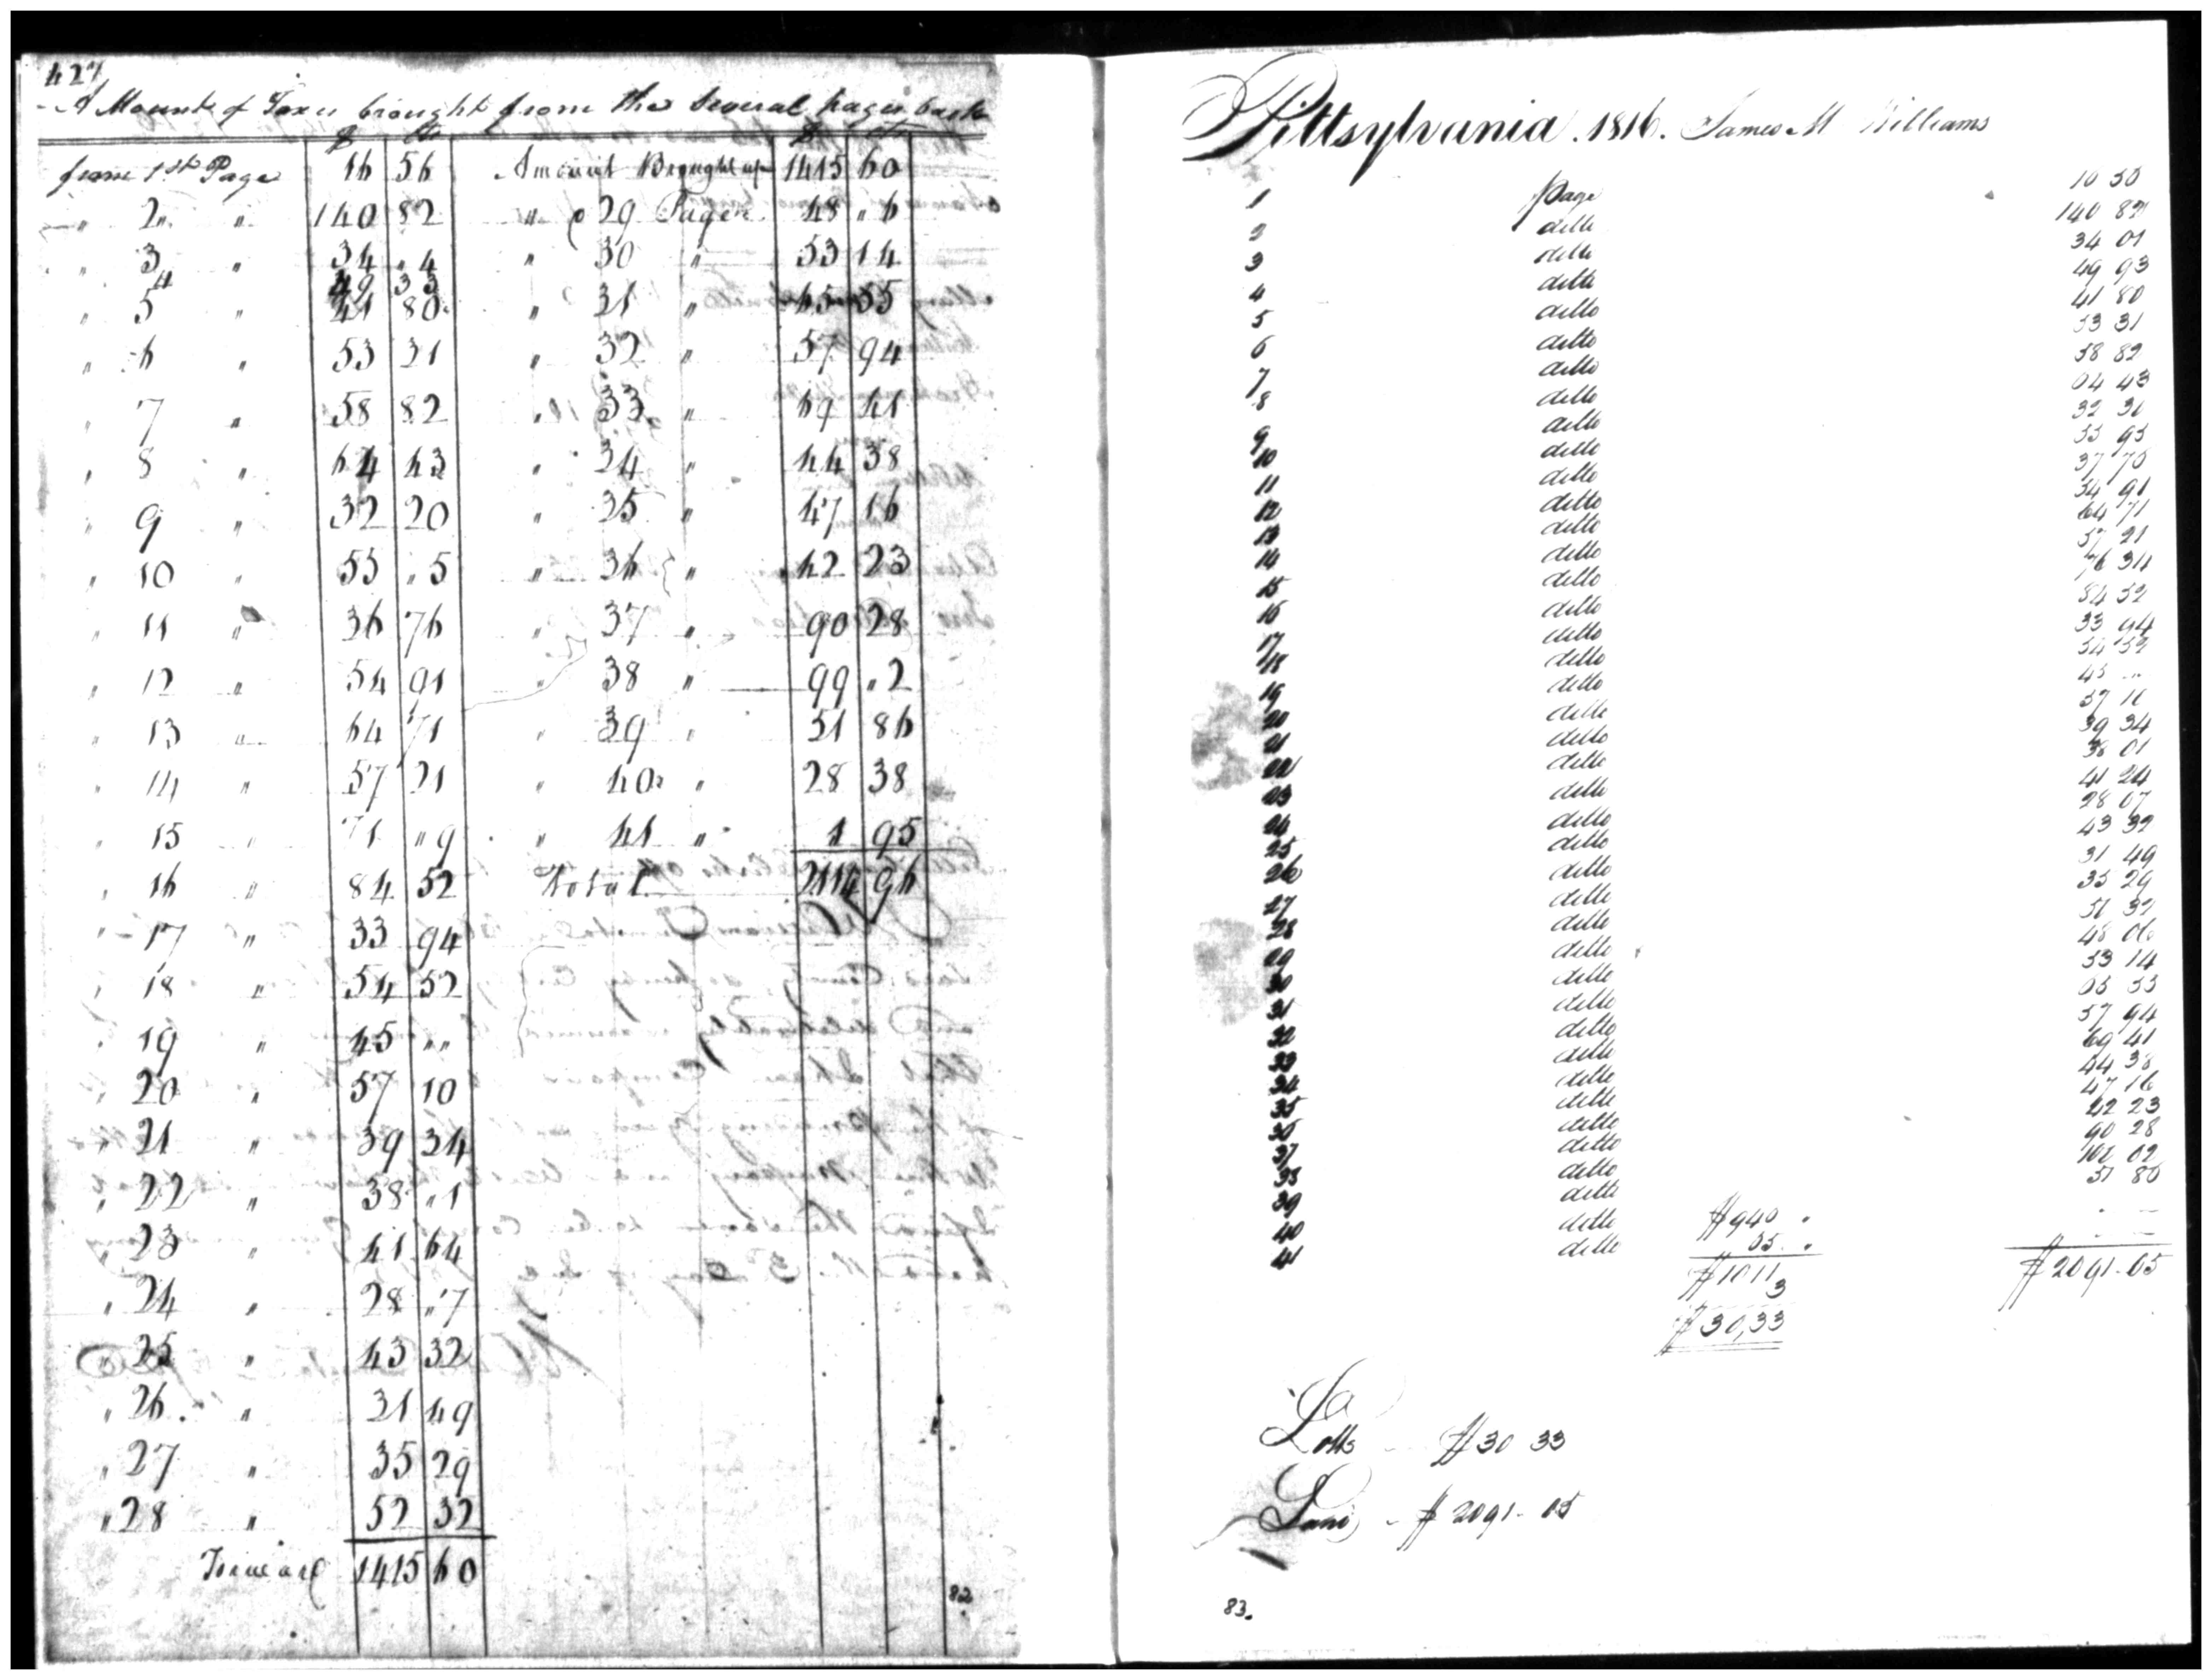 427
A Mount of Taxes brought from the Several pages back
$ Cts $ Cts
from 1st Page 16 56 Amount Brought up 1415 60
" 2 " 140 82 " 29 Pages 48 " 6
" 3 " 34 " 4 " 30 " 53 14
4 49 33
" 5 " 41 80 " 31 " 65 55
" 6 " 53 31 " 32 " 57 94
" 7 " 58 82 " 33 " 69 41
" 8 " 64 43 " 34 " 44 38
" 9 " 32 20 " 35 " 47 16
" 10 " 55 " 5 " 36 " 42 23
" 11 " 36 76 " 37 " 90 28
" 12 " 54 91 " 38 " 99 " 2
" 13 " 64 71 " 39 " 51 86
" 14 " 57 21 " 40 " 28 38
" 15 " 71 " 9 " 41 " 1 95
" 16 " 84 52 Total 2114 96
" 17 " 33 94
" 18 " 54 52
" 19 " 45 " "
" 20 " 57 10
" 21 " 39 34
" 22 " 38 " 1
" 23 " 41 64
" 24 " 28 " 7
" 25 " 43 32
" 26 " 31 49
" 27 " 35 29
" 28 " 52 32
Forward 1415 60
82
Pittsylvania . 1816. James M Williams
1 Page 10 50
2 ditto 140 82
3 ditto 34 01
4 ditto 49 93
5 ditto 41 80
6 ditto 53 31
7 ditto 58 82
8 ditto 64 43
9 ditto 32 31
10 ditto 55 95
11 ditto 37 75
12 ditto 54 91
13 ditto 64 71
14 ditto 57 21
15 ditto 76 34
16 ditto 84 52
17 ditto 33 94
18 ditto 54 52
19 ditto 45 ...
20 ditto 57 16
21 ditto 39 34
22 ditto 38 01
23 ditto 41 24
24 ditto 28 07
25 ditto 43 32
26 ditto 31 49
27 ditto 35 29
28 ditto 51 32
29 ditto 48 06
30 ditto 53 14
31 ditto 65 55
32 ditto 57 94
33 ditto 69 41
34 ditto 44 38
35 ditto 47 16
36 ditto 42 23
37 ditto 90 28
38 ditto 102 02
39 ditto 51 86
40 ditto $940 .
41 ditto
$1011 $2091.05
3
$30,33
Lotts $30 33
Land $2091.05
83.